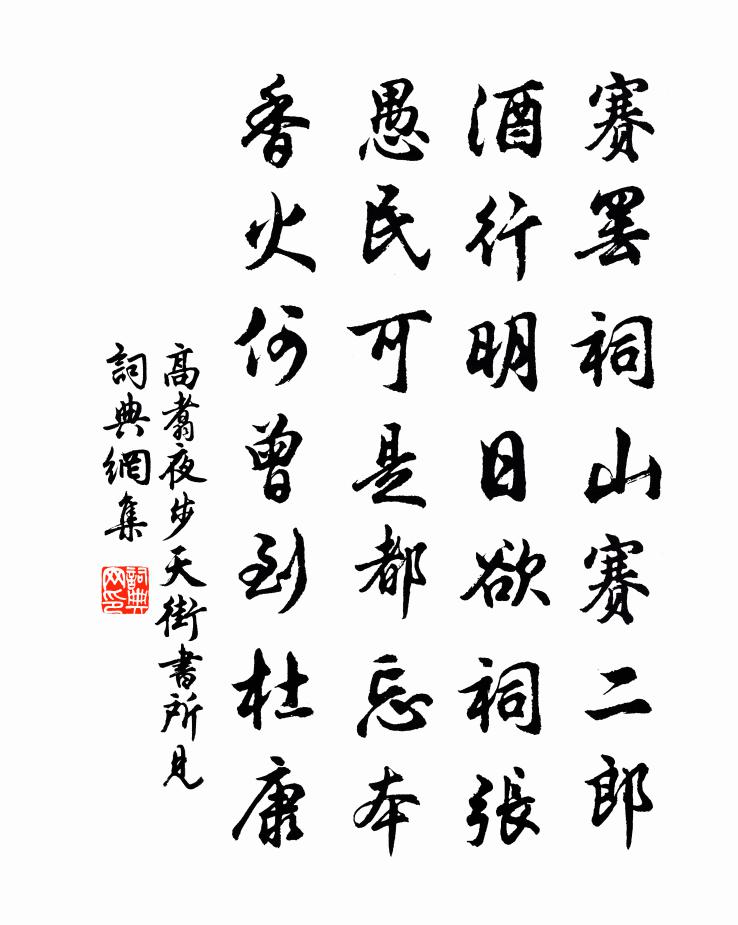 賽罷祠山賽二郎
酒行明日欲祠張
愚民可是都忘本
香火何曾到杜康
高翥夜步天街書所見
詞典網集
詞典
网印